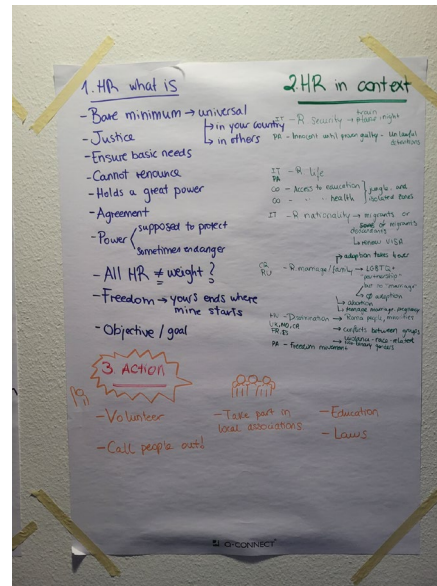 1. HR what is
- Bare minimum → universal
↳ in your country
↳ in others
- Justice
- Ensure basic needs
- Cannot renounce
- Holds a great power
- Agreement
- Power
supposed to protect
sometimes endanger
- All HR ≠ weight?
- Freedom → yours ends where
mine starts
- Objective / goal
2. HR in context
IT - R security → train
night
PA - Innocent until proven guilty - Unlawful
detentions
IT
PA
- R life
CO - Access to education
people and
CO - " " health
isolated zones
IT - R nationality → migrants or
migrants
↳ renew VISA
↳ adoption takes 4 ever
RU - R marriage/family → LGBTQ+
"partnership"
but no "marriage"
adoption
↳ abortion
↳ teenage marriage, pregnancy
- Discrimination → Roma people, minorities
↳ conflicts between groups
PA - Freedom movement
3. Action
- Volunteer
- Call people out!!
- Take part in
local associations
- Education
- Laws
Q-CONNECT